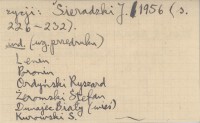 zycji: Sieradzki J. 1956 (s.
226-232).
ind. (wg. przedruku)
Lenin
Bronin
Ordyński Ryszard
Żeromski Stefan
Dunajec Biały (wieś)
Kurowski S.